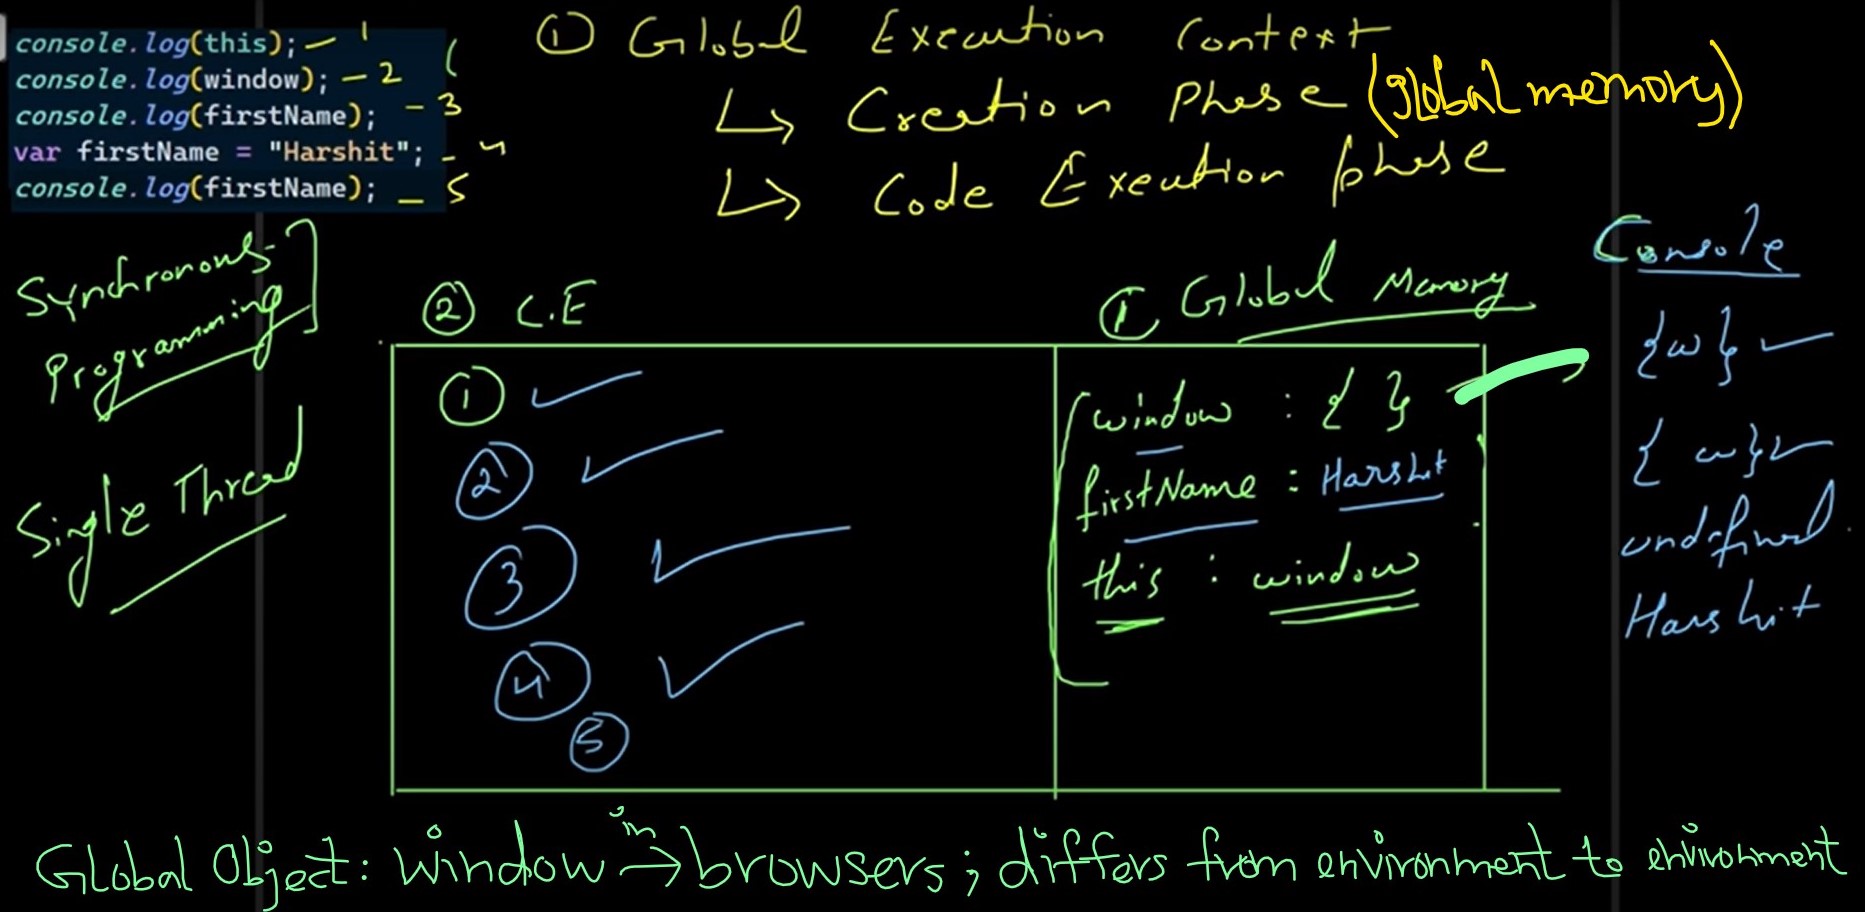 console.log(this); – 1
console.log(window); – 2
console.log(firstName); – 3
var firstName = "Harshit"; – 4
console.log(firstName); – 5
① Global Execution Context
↳ Creation Phase (global memory)
↳ Code Execution phase
Synchronous
Programming
Single Thread
② C.E
① ✓
② ✓
③ ✓
④ ✓
⑤
① Global Memory
window : { }
firstName : Harshit
this : window
Console
{w} ✓
{w} ✓
undefined
Harshit
Global Object: window in → browsers; differs from environment to environment